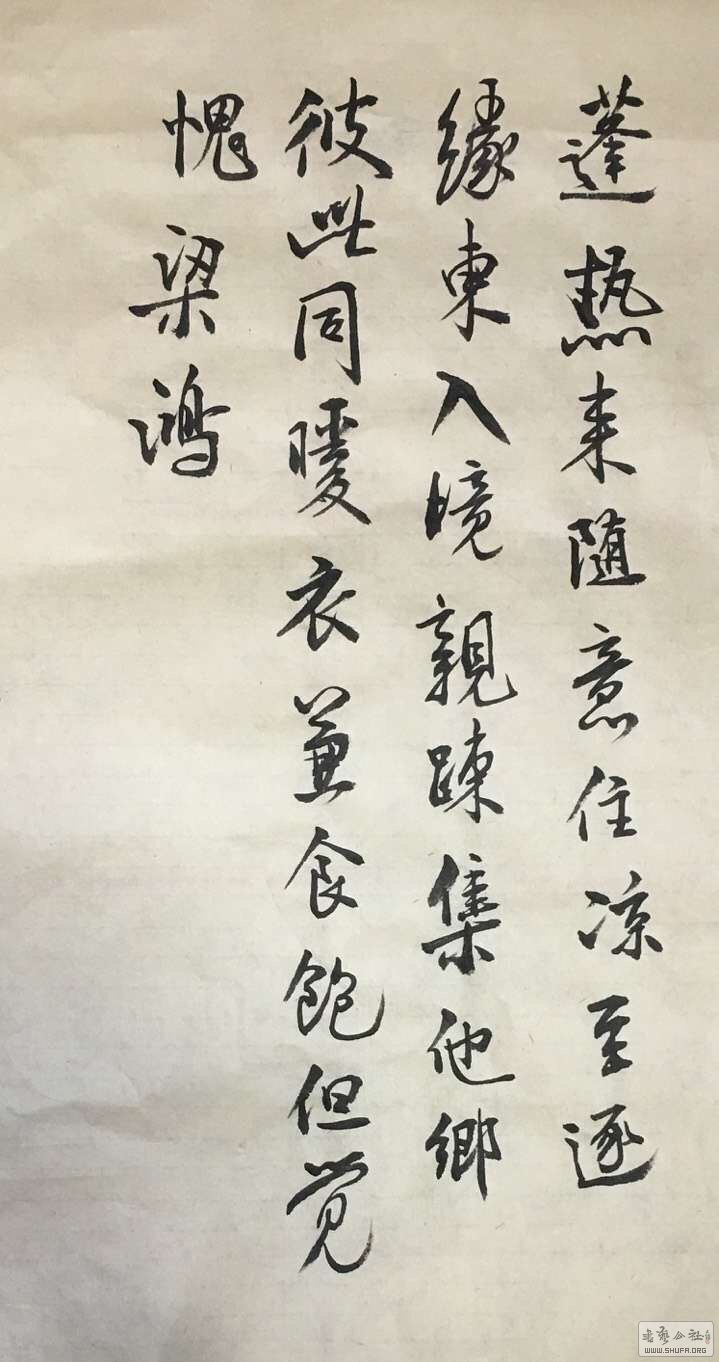 蓬熱来随意住凉至逐
緣東入境親踈集他鄉
彼此同暖衣兼食飽但覺
愧梁鴻
書藝公社
WWW.SHUFA.ORG